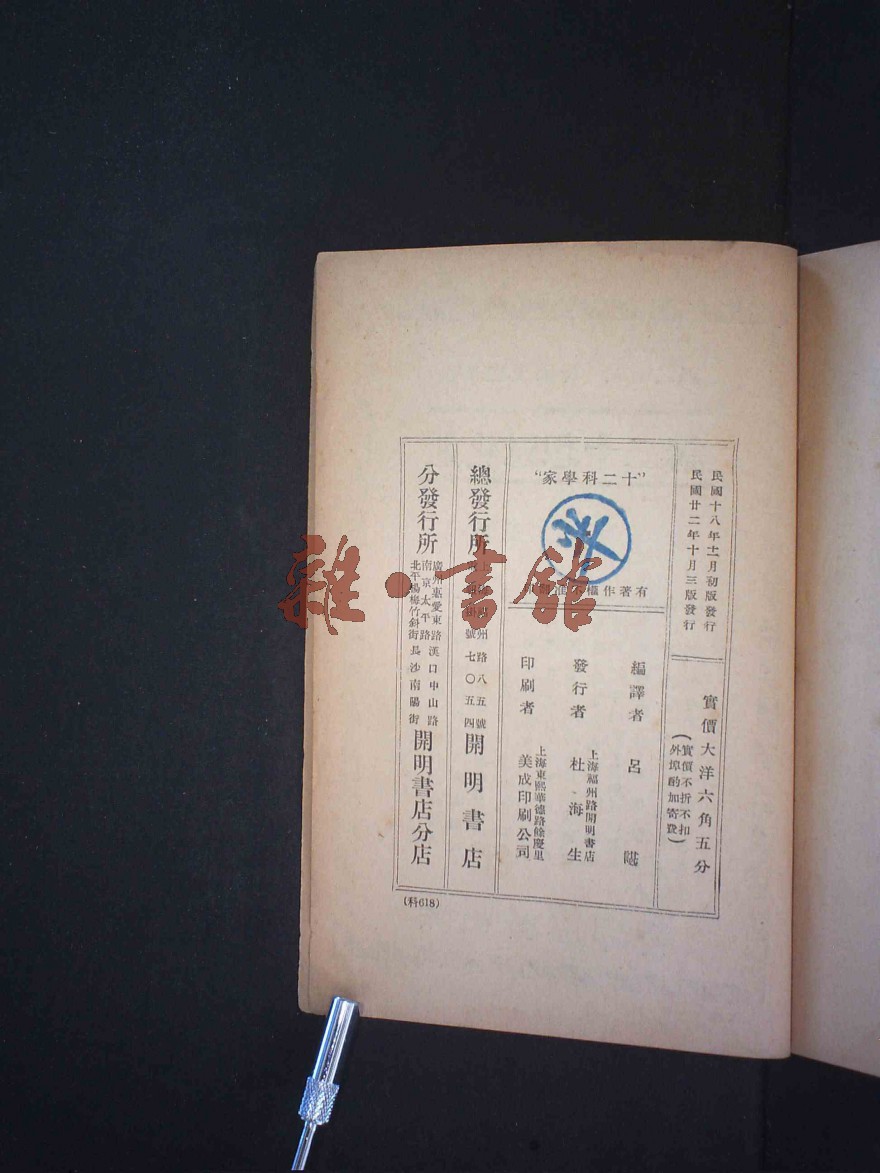 民國十八年十一月初版發行
民國廿二年十月三版發行
實價大洋六角五分
(實價不折不扣
外埠酌加寄費)
"十二科學家"
有著作權不
編譯者 呂
發行者
上海福州路開明書店
杜海生
印刷者
上海東熙華德路餘慶里
美成印刷公司
總發行所
州路八五號
號七〇五四
開明書店
分發行所
廣州惠愛東路漢口中山路
南京太平路長沙南陽街
北平楊梅竹斜街
開明書店分店
(科618)
雜·書館